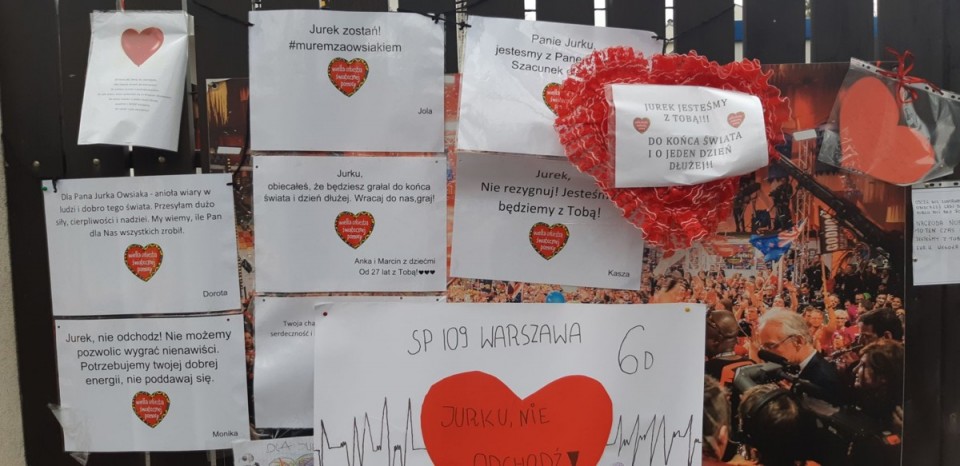 Jurek zostań!
#muremzaowsiakiem
wielka orkiestra
świątecznej
pomocy
Jola
Panie Jurku,
jestesmy z Pane
Szacunek
JUREK JESTEŚMY
Z TOBĄ!!!
DO KOŃCA ŚWIATA
I O JEDEN DZIEŃ
DŁUŻEJ!!
Dla Pana Jurka Owsiaka - anioła wiary w
ludzi i dobro tego świata. Przesyłam dużo
siły, cierpliwości i nadziei. My wiemy, ile Pan
dla Nas wszystkich zrobił.
wielka orkiestra
świątecznej
pomocy
Dorota
Jurku,
obiecałeś, że będziesz grałal do końca
świata i dzień dłużej. Wracaj do nas,graj!
wielka orkiestra
świątecznej
pomocy
Anka i Marcin z dziećmi
Od 27 lat z Tobą!♥♥♥
Jurek,
Nie rezygnuj! Jesteśm
będziemy z Tobą!
wielka orkiestra
świątecznej
pomocy
Kasza
Jurek, nie odchodź! Nie możemy
pozwolic wygrać nienawiści.
Potrzebujemy twojej dobrej
energii, nie poddawaj się.
wielka orkiestra
świątecznej
pomocy
Monika
Twoja
serdeczność i
SP 109 WARSZAWA
6D
JURKU, NIE
ODCHODŹ!